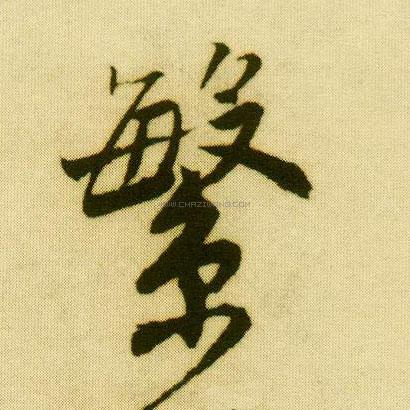 繁
WWW.CHAZIWANG.COM